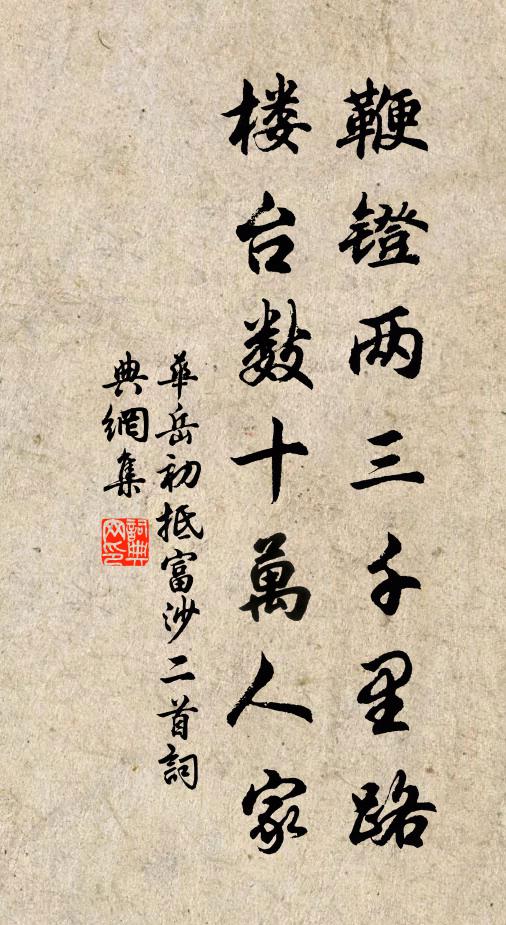 鞭镫两三千里路
楼台数十萬人家
華岳初抵富沙二首詞
典網集
詞典網印